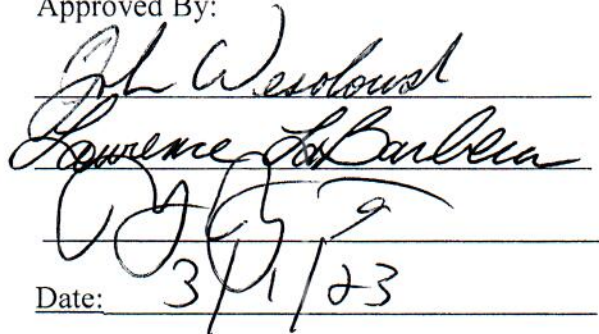 Approved By:
John Wesolowski
Lawrence LaBarbera
Date: 3/1/23